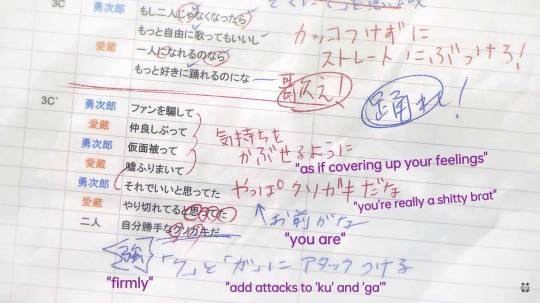 3C
勇次郎 もし二人じゃなくなったら
もっと自由に歌ってもいいし
愛蔵 一人になれるのなら
もっと好きに踊れるのにな
カッコつけずに
ストレートにぶつけろ!
歌え!
踊れ!
3C'
勇次郎 ファンを騙して
愛蔵 仲良しぶって
勇次郎 仮面被って
愛蔵 嘘ふりまいて
気持ちを
かぶせるように
"as if covering up your feelings"
勇次郎 それでいいと思ってた
愛蔵 やり切れてると思ってた
二人 自分勝手なクソガキだ
やっぱクソガキだな
"you're really a shitty brat"
お前がな
"you are"
強
"firmly"
「ク」と「ガ」に アタックつける
"add attacks to 'ku' and 'ga'"